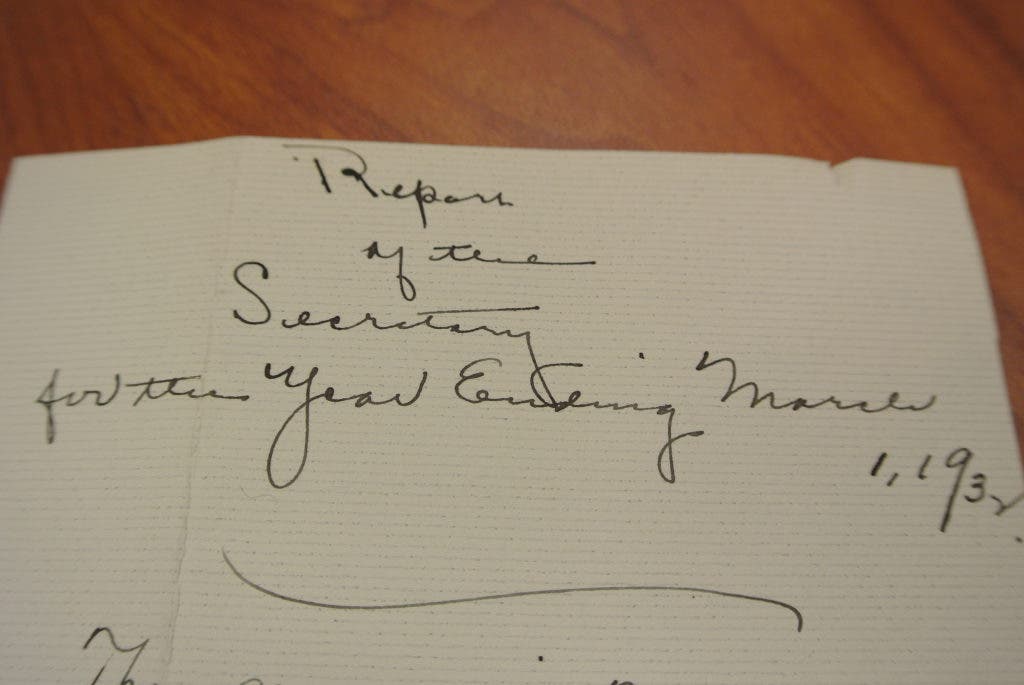 Report
of the
Secretary
for the Year Ending March
1, 1932.